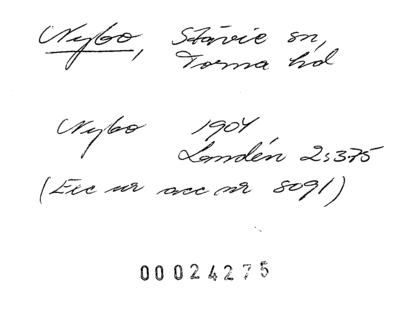 Nybo, Stävie sn,
Torna hd
Nybo 1904
Landén 2:375
(Exc ur acc nr 8091)
00024275